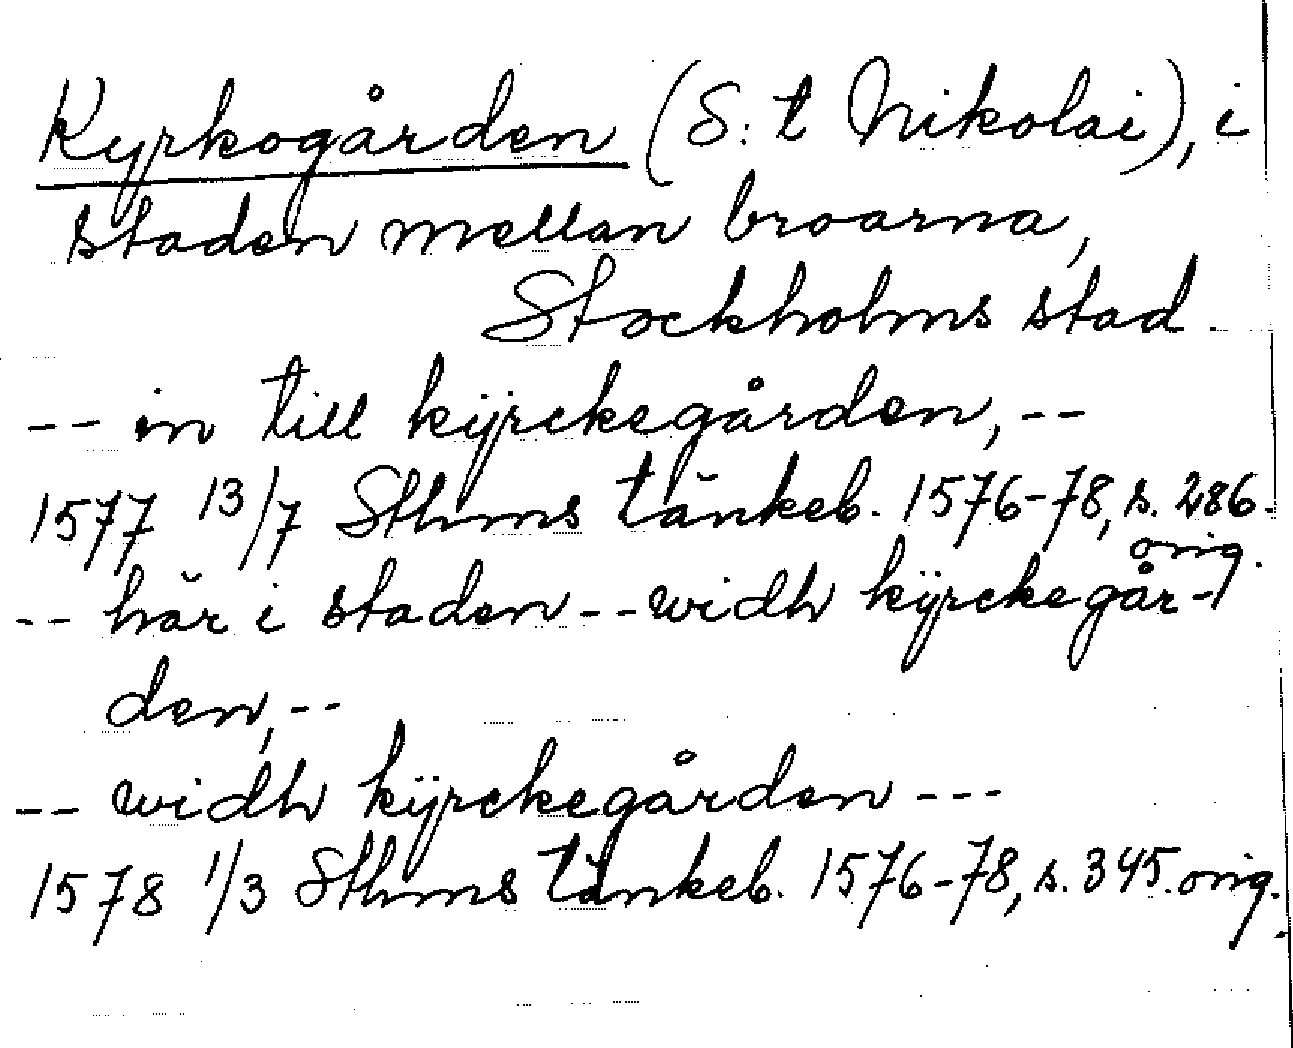 Kyrkogården (S:t Nikolai), i
staden mellan broarna,
Stockholms stad.
-- in till kÿrckegården, --
1577 13/7 Sthms tänkeb. 1576-78, s. 286.
orig.
-- här i staden -- widh kÿrckegår-
den, --
-- widh kÿrckegården ---
1578 1/3 Sthms tänkeb. 1576-78, s. 345. orig.